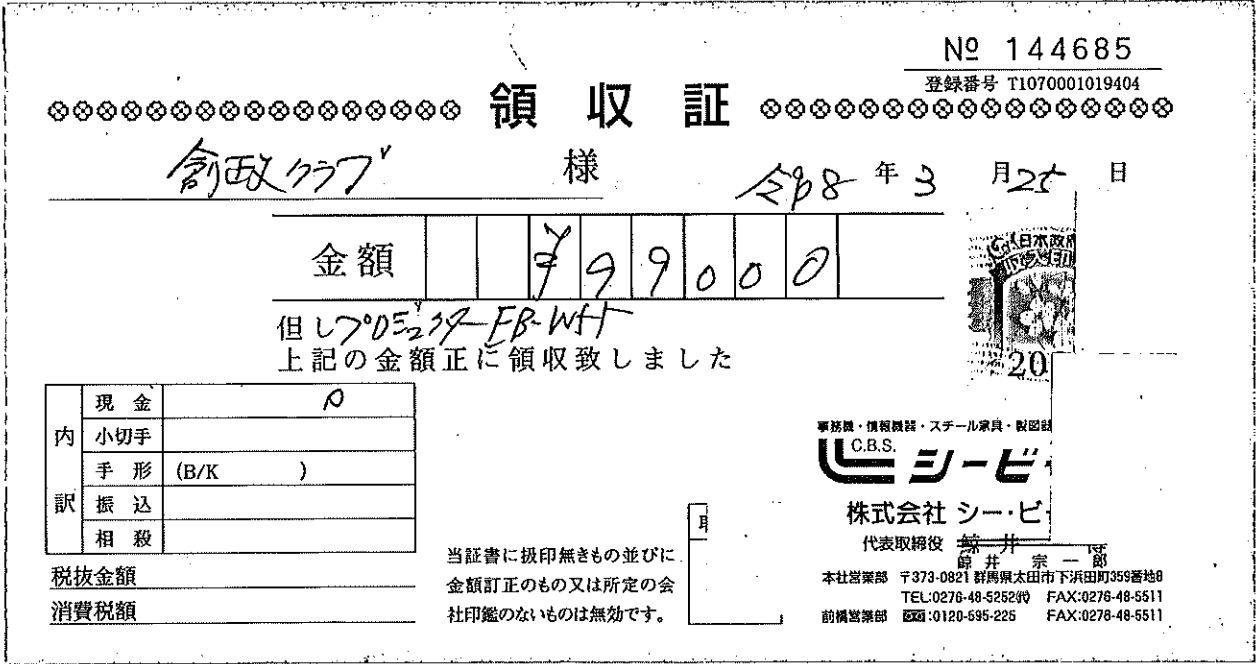 № 144685
登録番号 T1070001019404
領収証
創政クラブ 様 令和8年3月25日
金額 ¥99000
但しプロジェクターEB-W
上記の金額正に領収致しました
内訳
現金
小切手
手形 (B/K )
振込
相殺
税抜金額
消費税額
当証書に扱印無きもの並びに
金額訂正のもの又は所定の会
社印鑑のないものは無効です。
日本政府
20
事務機・情報機器・スチール家具・製図
C.B.S.
シービ
株式会社 シー・ビ
代表取締役 鯨井
鯨井 宗一郎
本社営業部 〒373-0821 群馬県太田市下浜田町359番地8
TEL:0276-48-5252㈹ FAX:0276-48-5511
前橋営業部 :0120-595-225 FAX:0276-48-5511